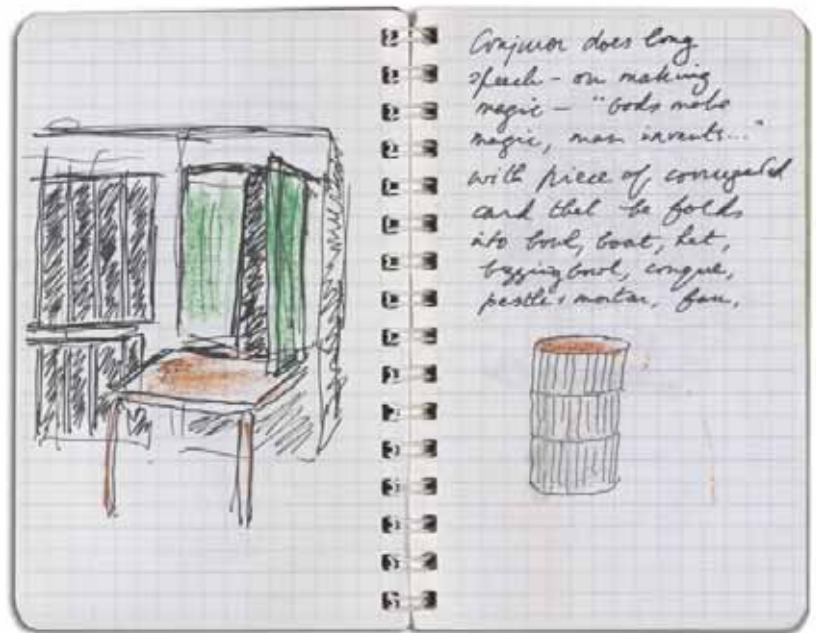 Conjuror does long
speech - on making
magic - "Gods make
magic, man invents..."
with piece of corrugated
card that he folds
into bowl, boat, hat,
begging bowl, conque,
pestle & mortar, fan.